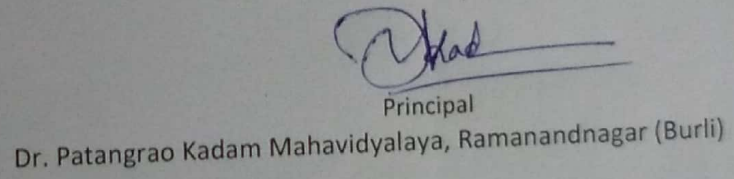 Principal
Dr. Patangrao Kadam Mahavidyalaya, Ramanandnagar (Burli)